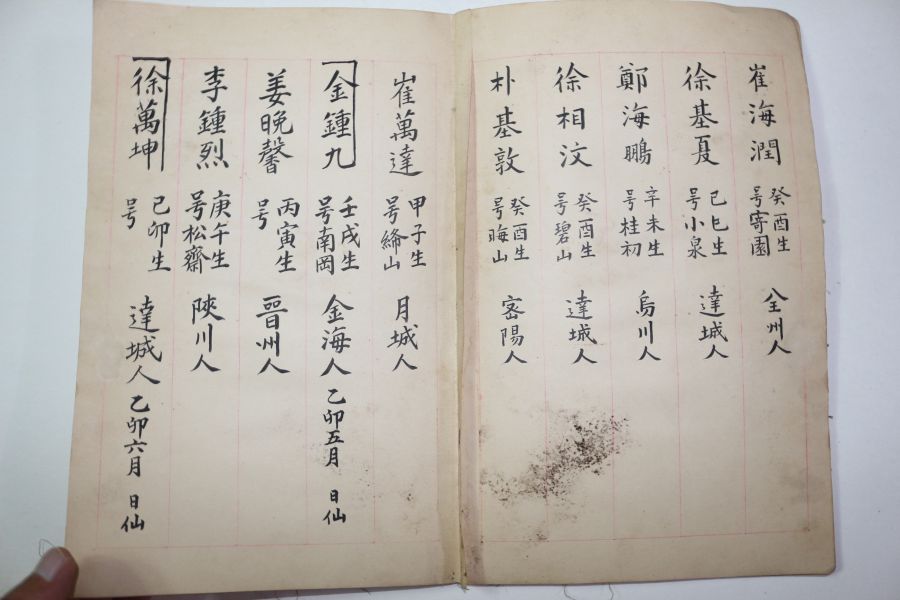 崔海潤 癸酉生 号寄園 全州人
徐基夏 己巳生 号小泉 達城人
鄭海鵬 辛未生 号桂初 烏川人
徐相汶 癸酉生 号碧山 達城人
朴基敦 癸酉生 号晦山 密陽人
崔萬達 甲子生 号絳山 月城人
金鍾九 壬戌生 号南岡 金海人 乙卯五月 日仙
姜晩馨 丙寅生 号 晉州人
李鍾烈 庚午生 号松齋 陜川人
徐萬坤 己卯生 号 達城人 乙卯六月 日仙